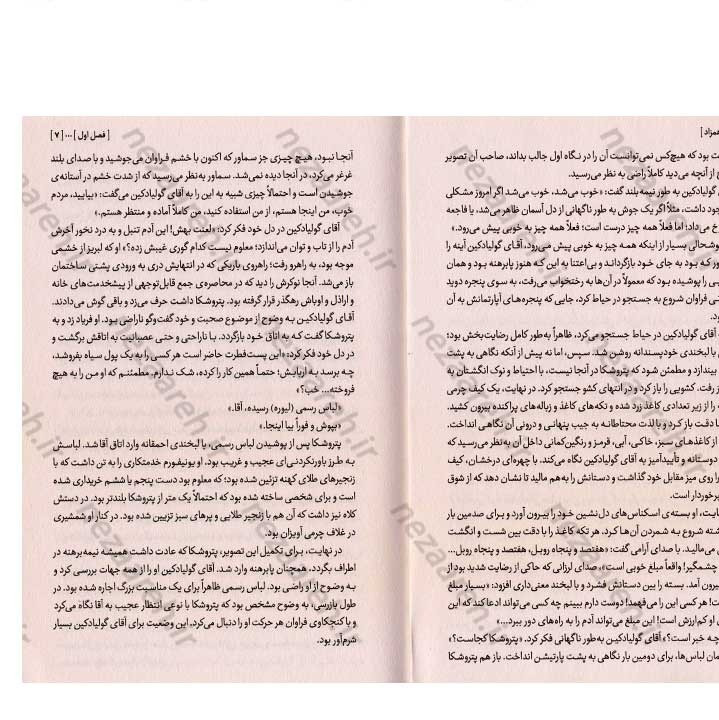 همزاد]
ت بود که هیچ‌کس نمی‌توانست آن را در نگاه اول جالب بداند، صاحب آن تصویر
از آنچه می‌دید کاملاً راضی به نظر می‌رسید.
گولیادکین به طور نیمه بلند گفت: «خوب می‌شد، خوب می‌شد اگر امروز مشکلی
جود داشت، مثلاً اگر یک جوش به طور ناگهانی از دل آسمان ظاهر می‌شد، یا فاجعه
خ می‌داد؛ اما فعلاً همه چیز درست است؛ فعلاً همه چیز به خوبی پیش می‌رود.»
وشحالی بسیار از اینکه همه چیز به خوبی پیش می‌رود، آقای گولیادکین آینه را
ور که بود به جای خود بازگرداند و بی‌اعتنا به این که هنوز پابرهنه بود و همان
ی را پوشیده بود که معمولاً در آن‌ها به رختخواب می‌رفت، به سوی پنجره دوید
ی فراوان شروع به جستجو در حیاط کرد، جایی که پنجره‌های آپارتمانش به آن
ود.
آقای گولیادکین در حیاط جستجو می‌کرد، ظاهراً به‌طور کامل رضایت‌بخش بود؛
با لبخندی خودپسندانه روشن شد. سپس، اما نه پیش از آنکه نگاهی به پشت
بیندازد و مطمئن شود که پتروشکا در آنجا نیست، با احتیاط و نوک انگشتان به
رفت. کشویی را باز کرد و در انتهای کشو جستجو کرد. در نهایت، یک کیف چرمی
را از زیر تعدادی کاغذ زرد شده و تکه‌های کاغذ و زباله‌های پراکنده بیرون کشید.
ا دقت باز کرد و با لذت محتاطانه به جیب پنهانی و درونی آن نگاهی انداخت.
از کاغذهای سبز، خاکی، آبی، قرمز و رنگین‌کمانی داخل آن به‌نظر می‌رسید که
دوستانه و تأییدآمیز به آقای گولیادکین نگاه می‌کند. با چهره‌ای درخشان، کیف
را روی میز مقابل خود گذاشت و دستانش را به‌هم مالید تا نشان دهد که از شوق
برخوردار است.
هایت، او بسته‌ی اسکناس‌های دل‌نشین خود را بیرون آورد و برای صدمین بار
شته شروع به شمردن آن‌ها کرد. هر تکه کاغذ را با دقت بین شست و انگشت
می‌مالید. با صدای آرامی گفت: «هفتصد و پنجاه روبل، هفتصد و پنجاه روبل...
چشمگیر! واقعاً مبلغ خوبی است»، صدای لرزانی که حاکی از رضایت شدید بود از
یرون آمد. بسته را بین دستانش فشرد و با لبخند معنی‌داری افزود: «بسیار مبلغ
ت! هر کسی این را می‌فهمد! دوست دارم ببینم چه کسی می‌تواند ادعا کند که این
او کم‌ارزش است! این مبلغ می‌تواند آدم را به راه‌های دور ببرد...»
چه خبر است؟» آقای گولیادکین به‌طور ناگهانی فکر کرد. «پتروشکا کجاست؟»
مان لباس‌ها، برای دومین بار نگاهی به پشت پارتیشن انداخت. باز هم پتروشکا
[ فصل اول ] ... [ ۷ ]
آنجا نبود، هیچ چیزی جز سماور که اکنون با خشم فراوان می‌جوشید و با صدای بلند
غرغر می‌کرد، در آنجا دیده نمی‌شد. سماور به‌نظر می‌رسید که از شدت خشم در آستانه‌ی
جوشیدن است و احتمالاً چیزی شبیه به این را به آقای گولیادکین می‌گفت: «بیایید، مردم
خوب، من اینجا هستم، از من استفاده کنید، من کاملاً آماده و منتظر هستم.»
آقای گولیادکین در دل خود فکر کرد: «لعنت بهش! این آدم تنبل و به درد نخور آخرش
آدم را از تاب و توان می‌اندازد؛ معلوم نیست کدام گوری غیبش زده؟» او که لبریز از خشمی
موجه بود، به راهرو رفت؛ راهروی باریکی که در انتهایش دری به ورودی پشتی ساختمان
باز می‌شد. آنجا نوکرش را دید که در محاصره‌ی جمع قابل‌توجهی از پیشخدمت‌های خانه
و اراذل و اوباش رهگذر قرار گرفته بود. پتروشکا داشت حرف می‌زد و باقی گوش می‌دادند.
آقای گولیادکین به وضوح از موضوع صحبت و خود گفت‌وگو ناراضی بود. او فریاد زد و به
پتروشکا گفت که به اتاق خود بازگردد. با ناراحتی و حتی عصبانیت به اتاقش برگشت و
در دل خود فکر کرد: «این پست‌فطرت حاضر است هر کسی را به یک پول سیاه بفروشد،
چه برسد به اربابش؛ حتماً همین کار را کرده، شک ندارم. مطمئنم که او من را به هیچ
فروخته... خب؟»
«لباس رسمی (لیوره) رسیده، آقا.»
«بپوش و فوراً بیا اینجا.»
پتروشکا پس از پوشیدن لباس رسمی، با لبخندی احمقانه وارد اتاق آقا شد. لباسش
به طرز باورنکردنی‌ای عجیب و غریب بود. او یونیفورم خدمتکاری را به تن داشت که با
زنجیرهای طلای کهنه تزئین شده بود؛ که معلوم بود دست پنجم یا ششم خریداری شده
است و برای شخصی ساخته شده بود که احتمالاً یک متر از پتروشکا بلندتر بود. در دستش
کلاه نیز داشت که آن هم با زنجیر طلایی و پرهای سبز تزیین شده بود. در کنار او شمشیری
در غلاف چرمی آویزان بود.
در نهایت، برای تکمیل این تصویر، پتروشکا که عادت داشت همیشه نیمه‌برهنه در
اطراف بگردد، همچنان پابرهنه وارد شد. آقای گولیادکین او را از همه جهات بررسی کرد و
به وضوح از او راضی بود. لباس رسمی ظاهراً برای یک مناسبت بزرگ اجاره شده بود. در
طول بازرسی، به وضوح مشخص بود که پتروشکا با نوعی انتظار عجیب به آقا نگاه می‌کرد
و با کنجکاوی فراوان هر حرکت او را دنبال می‌کرد. این وضعیت برای آقای گولیادکین بسیار
شرم‌آور بود.
nezareh.ir